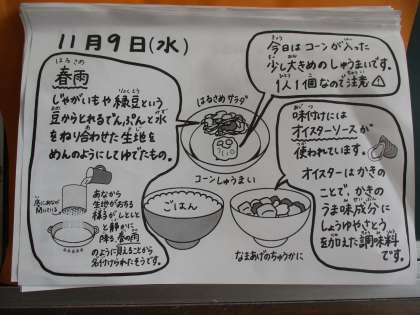 11月9日(水)
はるさめ
春雨
じゃがいもや緑豆という
豆からとれるでんぷんと水
をねり合わせた生地を
めんのようにしてゆでたもの。
あなから
生地がおちる
様子がしとしと
と静かに
降る春の雨
のように見えることから
名付けられたそうです。
はるさめサラダ
コーンしゅうまい
ごはん
なまあげのちゅうかに
今日はコーンが入った
少し大きめのしゅうまいです。
1人1個なので注意
味付けには
オイスターソースが
使われています。
オイスターはかきの
ことで、かきの
うま味成分に
しょうゆやさとう
を加えた調味料
です。